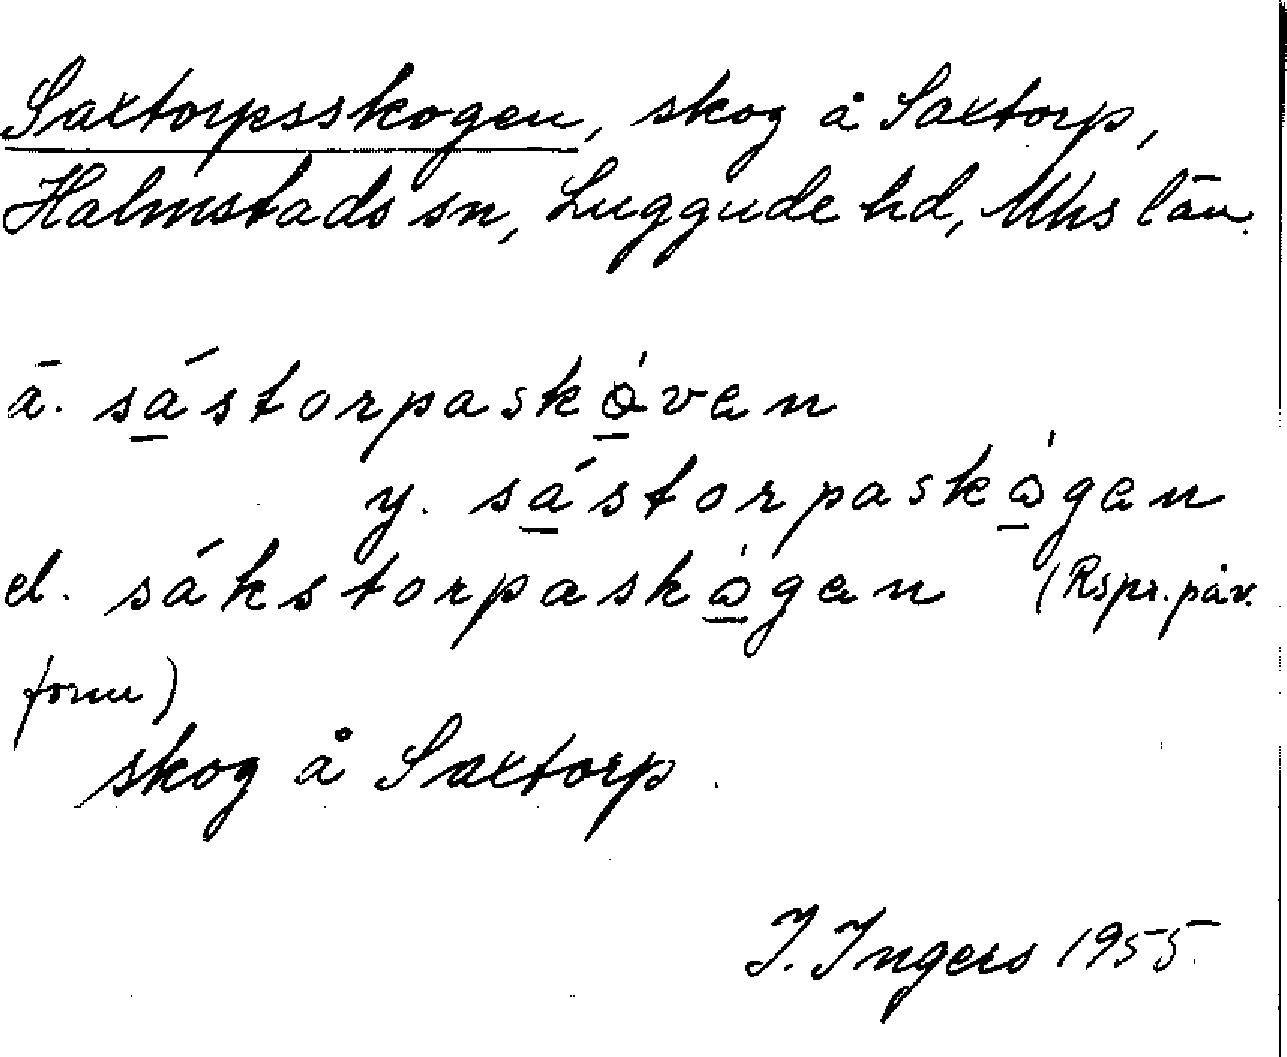 Saxtorpsskogen, skog å Saxtorp,
Halmstads sn, Luggude hd, Mhs län.
ä. sástorpaskòven
y. sástorpaskògen
el. sákstorpaskògen (Rspr. påv.
form)
skog å Saxtorp.
I. Ingers 1955.